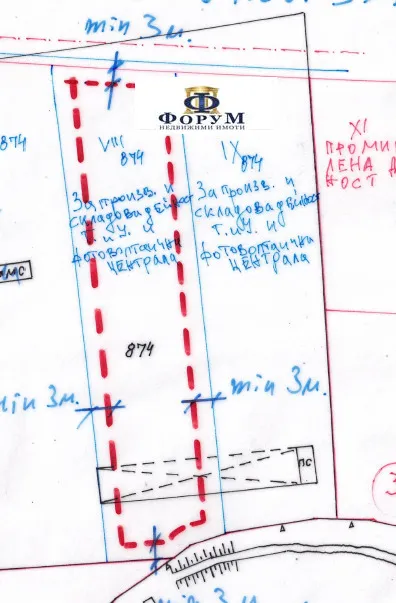 min 3м.
ФОРУМ
НЕДВИЖИМИ ИМОТИ
874
VIII
874
За произв. и
складова дейност
т. и у. и
фотоволтаична
централа
IX
874
За произв. и
складова дейност
т. и у. и
фотоволтаична
централа
XI
ПРОМИ
ЛЕНА Д
НОСТ
МС
874
min 3м.
min 3м.
ПС
3
min 3м.